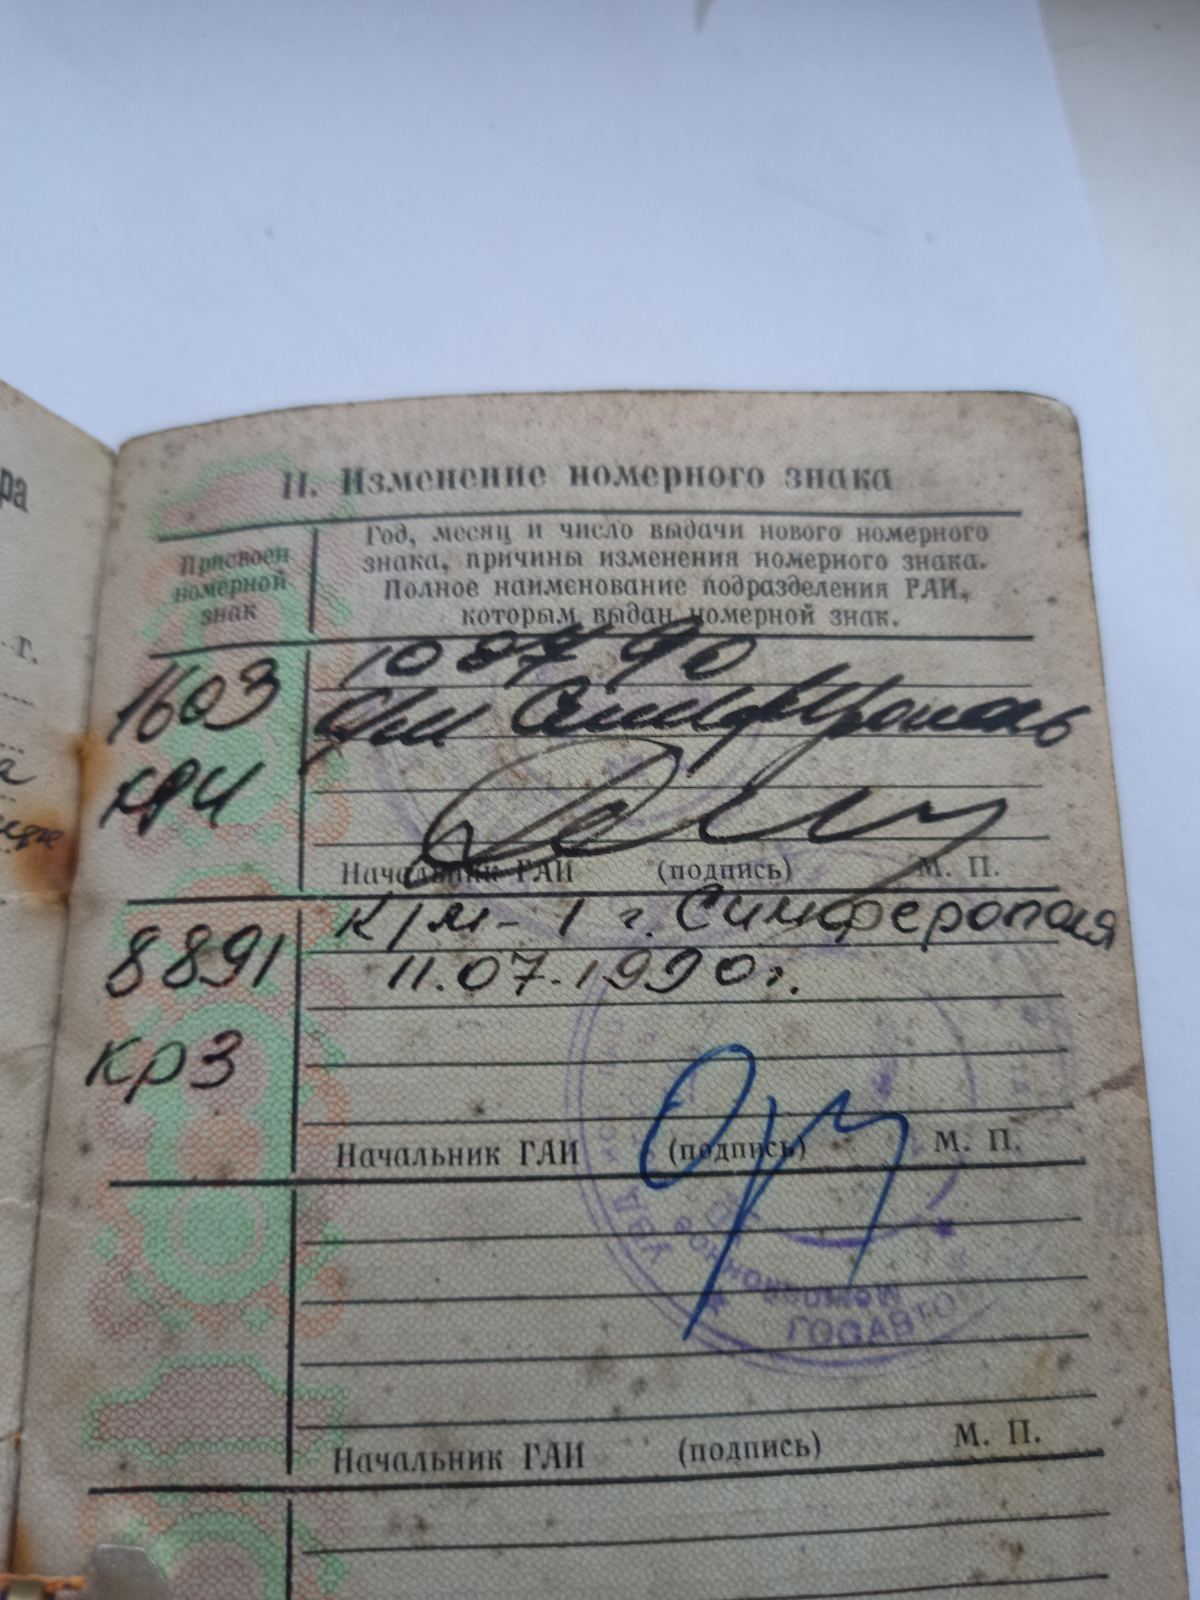 ра
г.
II. Изменение номерного знака
Присвоен
номерной
знак
Год, месяц и число выдачи нового номерного
знака, причины изменения номерного знака.
Полное наименование подразделения ГАИ,
которым выдан номерной знак.
1603
10 07 90
Симферополь
Начальник ГАИ (подпись) М. П.
8891
крЗ
г. Симферополя
11.07.1990г.
Начальник ГАИ (подпись) М. П.
УВД
ГОСАВТО
Начальник ГАИ (подпись) М. П.